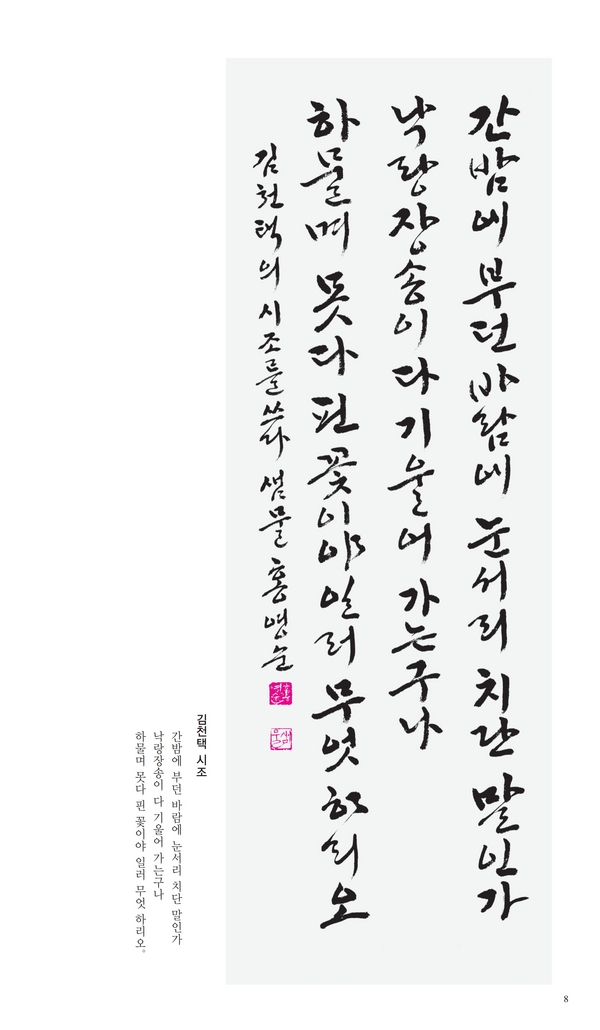 간밤에 부던 바람에 눈서리 치단 말인가
낙랑장송이 다 기울어 가는구나
하물며 못다 핀 꽃이야 일러 무엇 하리오
김천택의 시조를 쓰다 샘물 홍영순
김천택 시조
간밤에 부던 바람에 눈서리 치단 말인가
낙랑장송이 다 기울어 가는구나
하물며 못다 핀 꽃이야 일러 무엇 하리오.
8